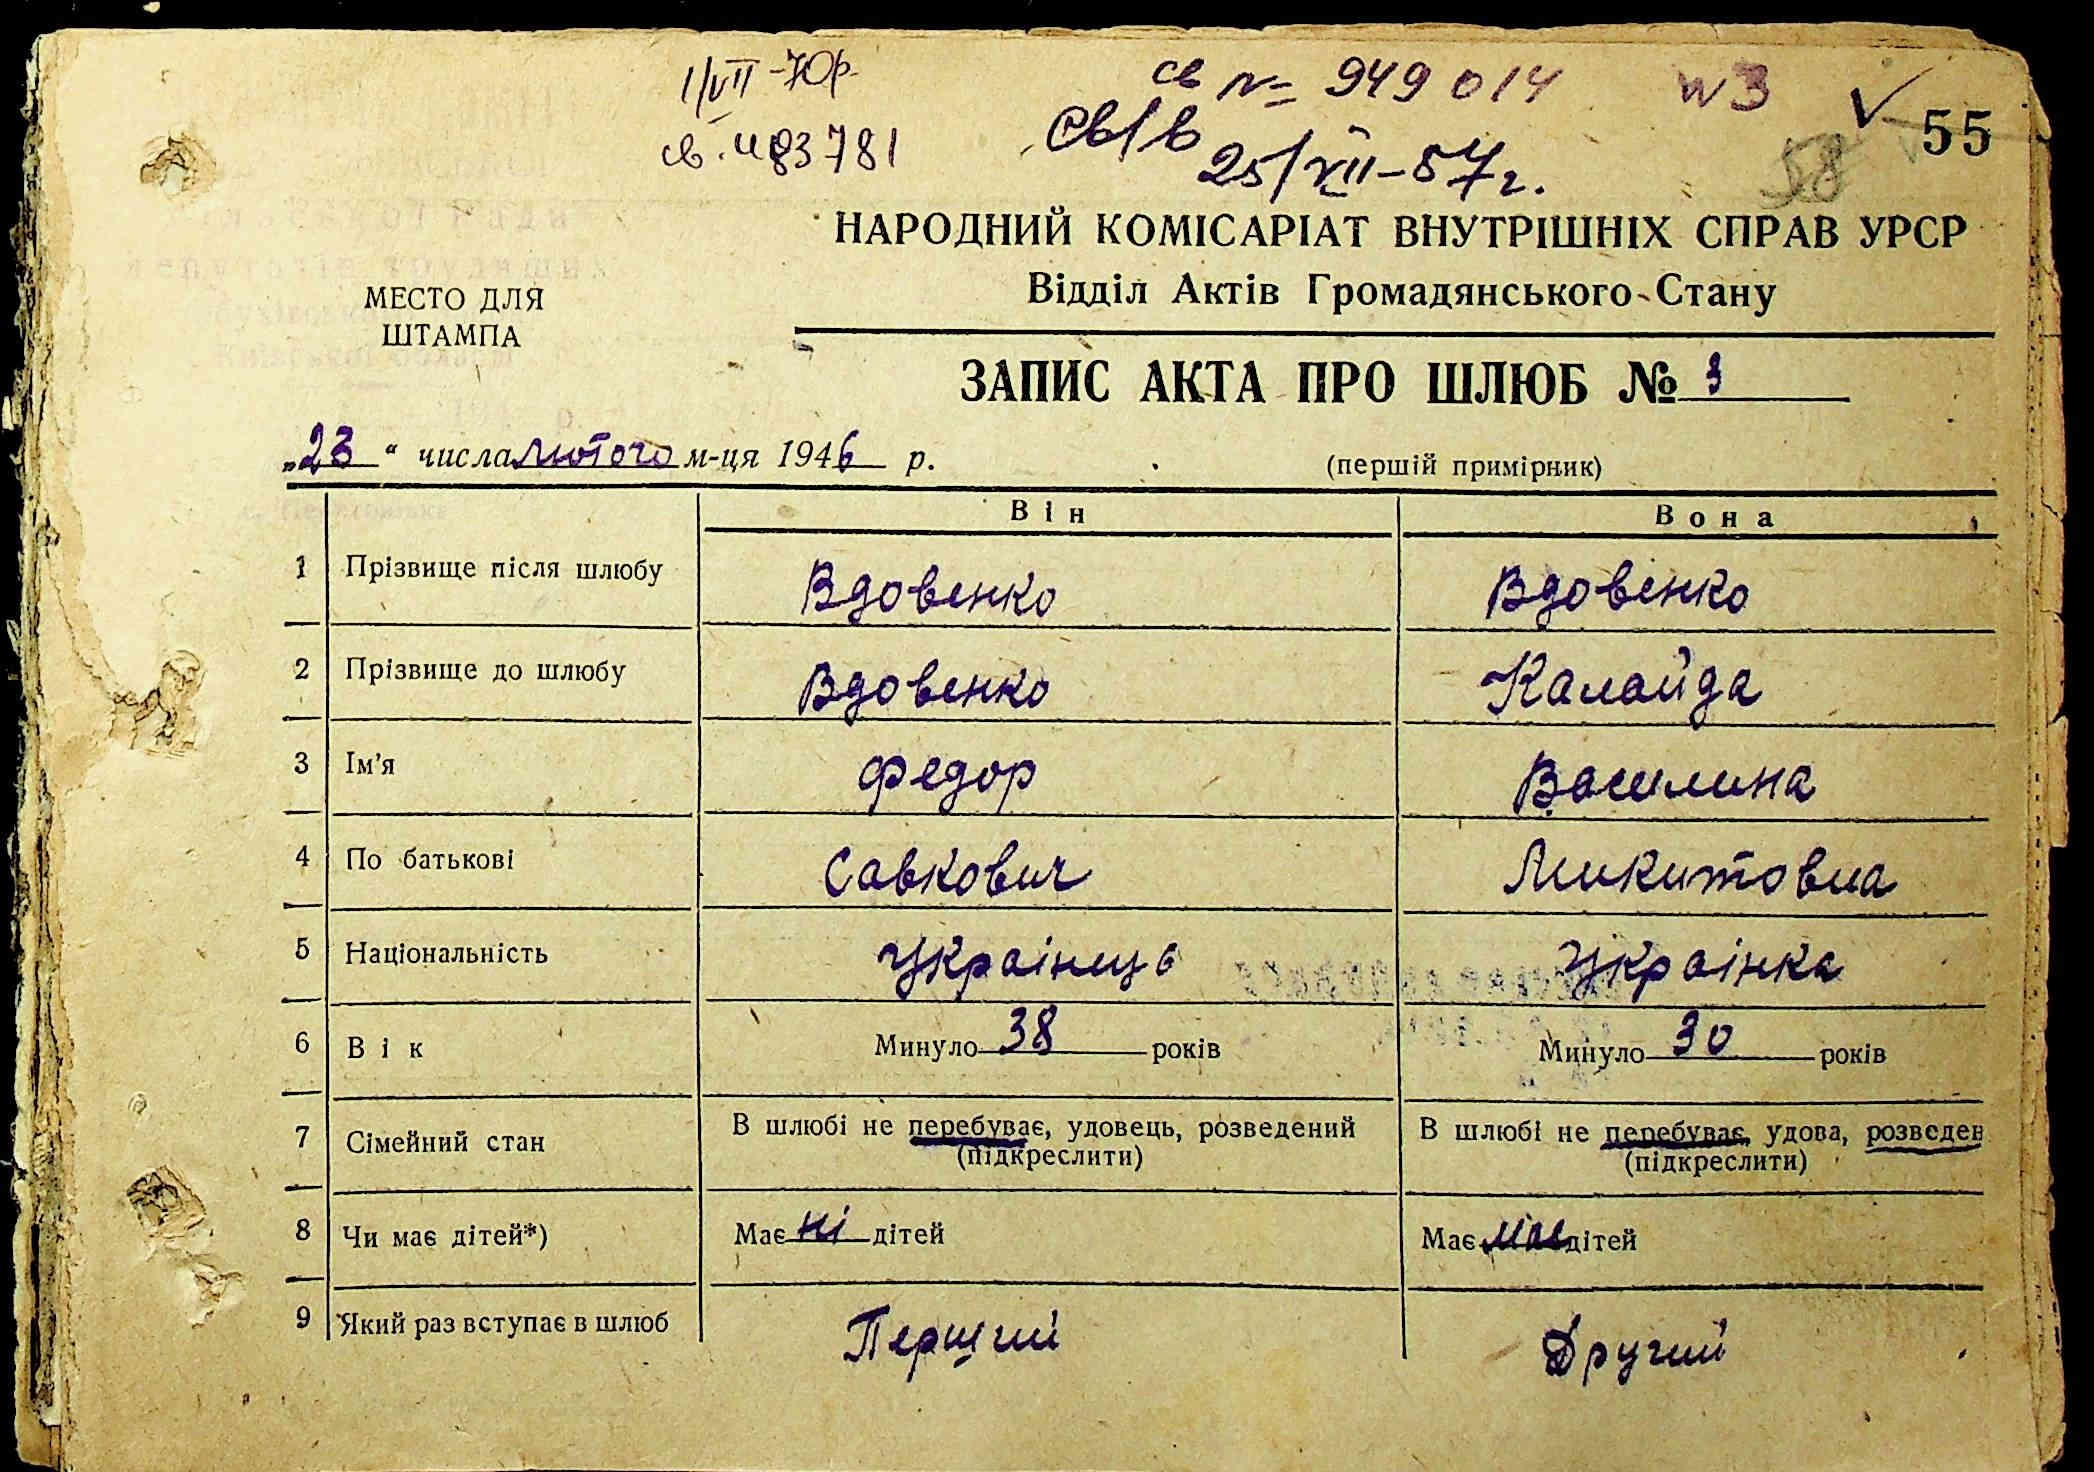 I/VII-70р.
св. 483781
св № 949014
№3
55
св/в
25/XII-57г.
58
НАРОДНИЙ КОМІСАРІАТ ВНУТРІШНІХ СПРАВ УРСР
Відділ Актів Громадянського Стану
МЕСТО ДЛЯ
ШТАМПА
ЗАПИС АКТА ПРО ШЛЮБ № 3
„23“ числа лютого м-ця 1946 р.
(першій примірник)
Він
Вона
1 Прізвище після шлюбу Вдовенко Вдовенко
2 Прізвище до шлюбу Вдовенко Калайда
3 Ім'я Федор Василина
4 По батькові Савкович Микитовна
5 Національність Українець Українка
6 Вік Минуло 38 років Минуло 30 років
7 Сімейний стан В шлюбі не перебуває, удовець, розведений В шлюбі не перебуває, удова, розведен
(підкреслити) (підкреслити)
8 Чи має дітей*) Має ні дітей Має має дітей
9 Який раз вступає в шлюб Перший Другий